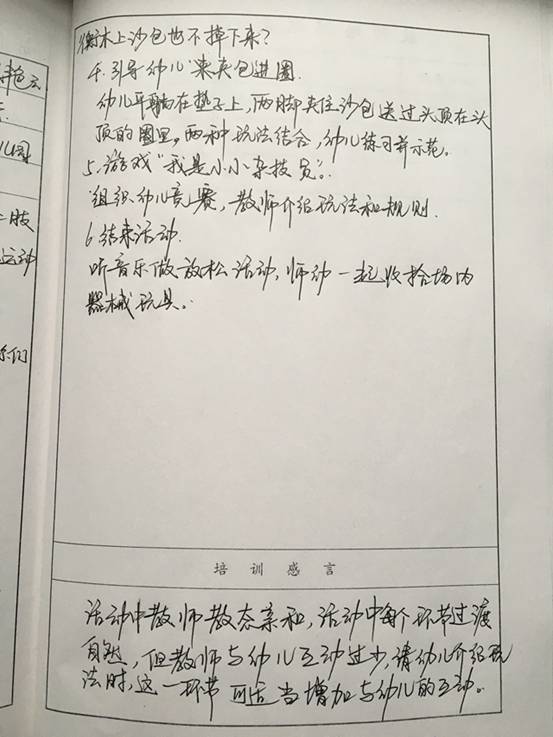 衡木上沙包也不掉下来?
4.引导幼儿"来夹包进圈.
幼儿平躺在垫子上,两脚夹住沙包送过头顶在头
顶的圈里,两种玩法结合,幼儿练习并示范。
5.游戏"我是小小杂技员"。
组织幼儿竞赛,教师介绍玩法和规则.
6.结束活动.
听音乐做放松活动,师幼一起收拾场内
器械玩具。
培训感言
活动中教师教态亲和,活动中每个环节过渡
自然,但教师与幼儿互动过少,请幼儿介绍玩
法时,这一环节可适当增加与幼儿的互动。
儿园
二肢
运动